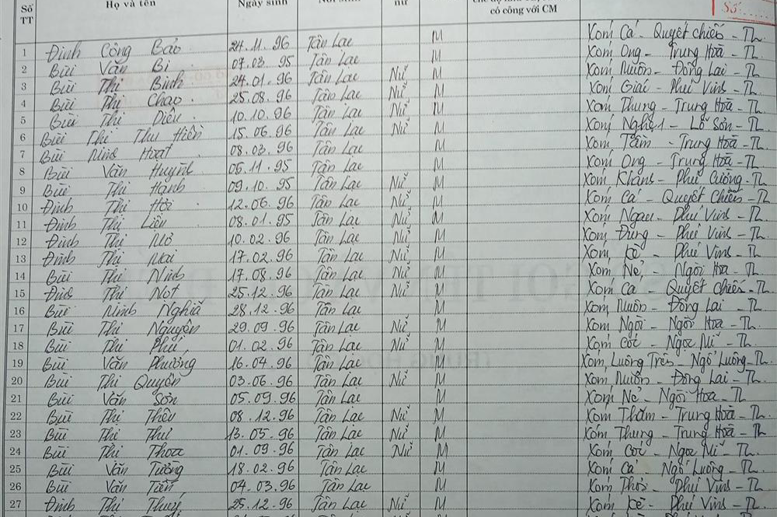 Số TT Họ và tên Ngày sinh Nơi sinh nữ có công với CM
1 Đinh Công Bảo 24.11.96 Tân Lạc M Xóm Cá - Quyết chiến - TL
2 Bùi Văn Bi 07.03.95 Tân Lạc M Xóm Ong - Trung Hoà - TL
3 Bùi Thị Bình 24.01.96 Tân Lạc Nữ M Xóm Muôn - Đông Lai - TL
4 Bùi Thị Chạo 25.08.96 Tân Lạc Nữ M Xóm - Phú Vinh - TL
5 Bùi Thị Diệu 10.10.96 Tân Lạc Nữ M Xóm Thung - Trung Hoà - TL
6 Bùi Thị Thu Hiền 15.06.96 Tân Lạc Nữ M Xóm - Lỗ Sơn - TL
7 Bùi Ninh Hoạt 08.03.96 Tân Lạc M Xóm - Trung Hoà - TL
8 Bùi Văn Huỳnh 05.11.95 Tân Lạc M Xóm Ong - Trung Hoà - TL
9 Bùi Thị Hạnh 09.10.95 Tân Lạc Nữ M Xóm - Phú Cường - TL
10 Đinh Thị 12.06.96 Tân Lạc Nữ M Xóm Cá - Quyết Chiến - TL
11 Đinh Thị Liên 08.01.95 Tân Lạc Nữ M Xóm - Phú Vinh - TL
12 Đinh Thị 10.02.96 Tân Lạc Nữ M Xóm - Phú Vinh - TL
13 Đinh Thị Mai 17.02.96 Tân Lạc Nữ M Xóm Kè - Phú Vinh - TL
14 Bùi Thị Ninh 17.08.96 Tân Lạc Nữ M Xóm Nẻ - Ngòi Hoa - TL
15 Đinh Thị 25.12.96 Tân Lạc Nữ M Xóm Cá - Quyết Chiến - TL
16 Bùi Ninh Nghĩa 28.12.96 Tân Lạc M Xóm Muôn - Đông Lai - TL
17 Bùi Thị Nguyên 29.09.96 Tân Lạc Nữ M Xóm Ngòi - Ngòi Hoa - TL
18 Bùi Thị Phú 01.02.96 Tân Lạc Nữ M Xóm Cóc - Ngọc Mĩ - TL
19 Bùi Văn Phường 16.04.96 Tân Lạc M Xóm Luông Trên - Ngổ Luông - TL
20 Bùi Thị Quyên 03.06.96 Tân Lạc Nữ M Xóm Muôn - Đông Lai - TL
21 Bùi Văn Sơn 05.09.96 Tân Lạc M Xóm Nẻ - Ngòi Hoa - TL
22 Bùi Thị 08.12.96 Tân Lạc Nữ M Xóm Thăm - Trung Hoà - TL
23 Bùi Thị Thi 13.05.96 Tân Lạc Nữ M Xóm Thung - Trung Hoà - TL
24 Bùi Thị Thoa 01.09.96 Tân Lạc Nữ M Xóm Cóc - Ngọc Mĩ - TL
25 Bùi Văn Tưởng 18.02.96 Tân Lạc M Xóm Cá - Ngổ Luông - TL
26 Bùi Văn 04.03.96 Tân Lạc M Xóm - Phú Vinh - TL
27 Đinh Thị Thuý 25.12.96 Tân Lạc Nữ M Xóm Kè - Phú Vinh - TL